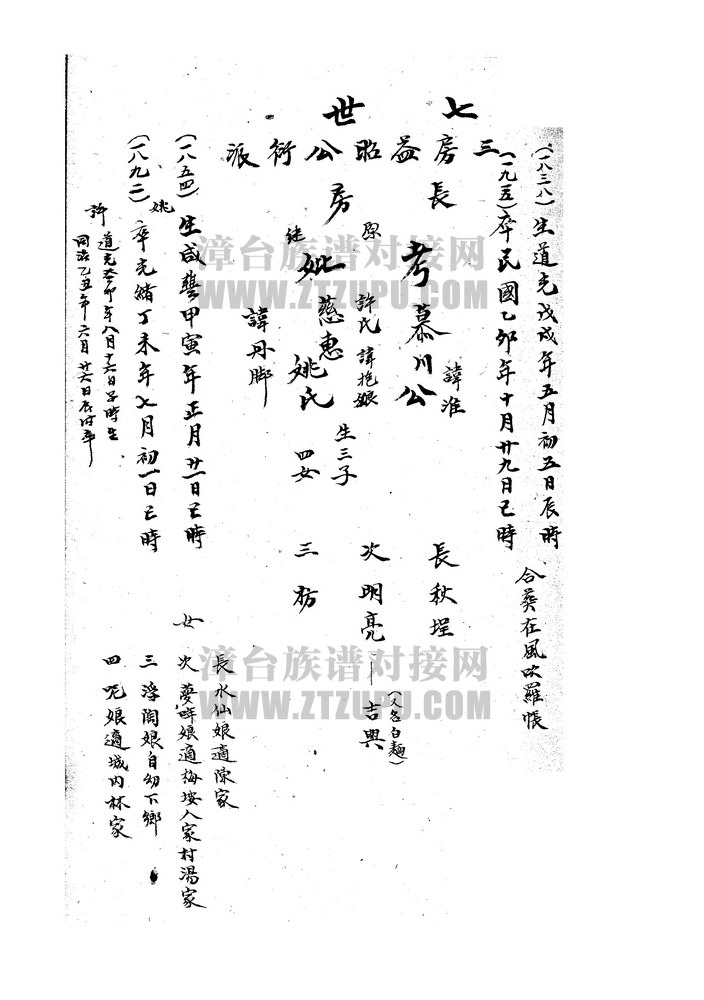 七世
三房益昭公衍派
長房
(一八三八)生道光戊戌年五月初五日辰時
(一九一五)卒民國乙卯年十月廿九日巳時
合葬在風吹羅帳
考慕川公
諱淮
原 許氏 諱抱娘
継 妣慈惠姚氏
諱丹脚
生三子
四女
姚
(一八五四)生咸豐甲寅年正月廿一日巳時
(一八九二)卒光緒丁未年七月初一日巳時
許
道光癸卯年八月十六日子時生
同治乙丑年六月廿六日辰时卒
長秋埕
次明亮—吉興
(又名白麵)
三枋
女
長水仙娘適陳家
次夢嘩娘適梅垵入家村湯家
三浮陶娘自幼下鄉
四兕娘適城内林家
漳台族谱对接网
WWW.ZTZUPU.COM
漳台族谱对接网
WWW.ZTZUPU.COM